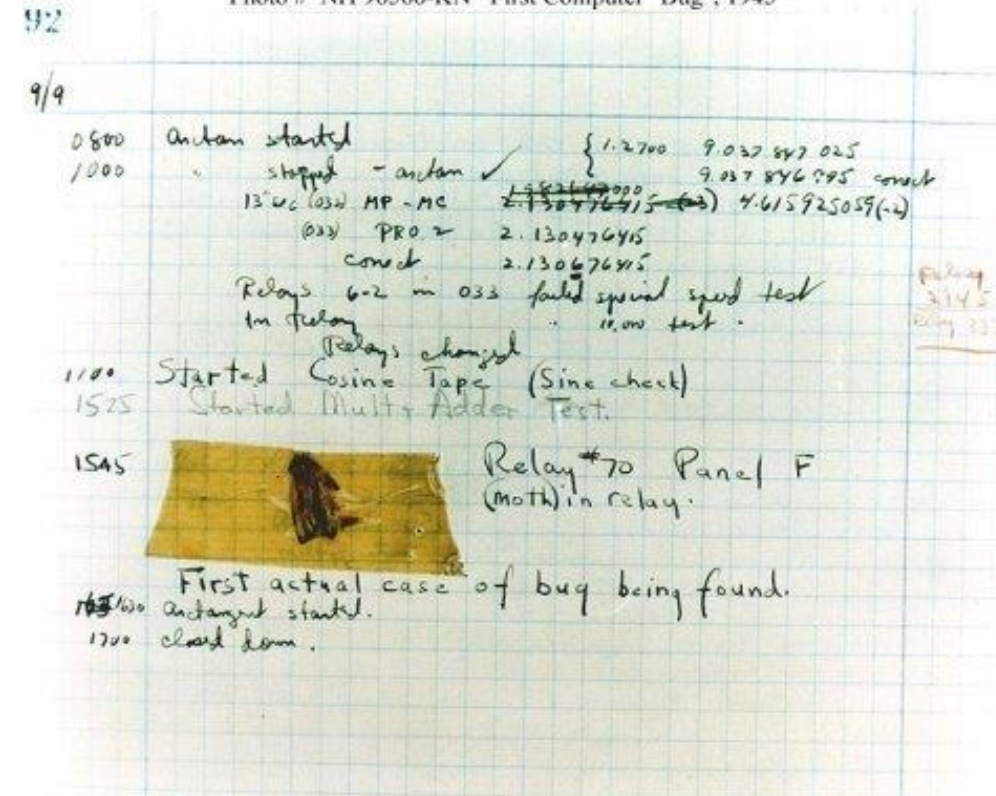 Photo # NH 96566-KN "First Computer "Bug", 1945
92
9/9
0800 antan started
1000 " stopped - antan ✓ { 1.2700 9.037 847 025
9.037 846 995 conect
13" uc (032) MP - MC 2.130476415 (-3) 4.615925059(-2)
(033) PRO 2 2.130476415
conect 2.130676415
Relays 6-2 in 033 failed special speed test
In Relay " 10,000 test .
Relays changed
1100 Started Cosine Tape (Sine check)
1525 Started Mult + Adder Test.
1545 Relay #70 Panel F
(moth) in relay.
First actual case of bug being found.
1630 antangent started.
1700 closed down .
Relay
2145
Relay 33